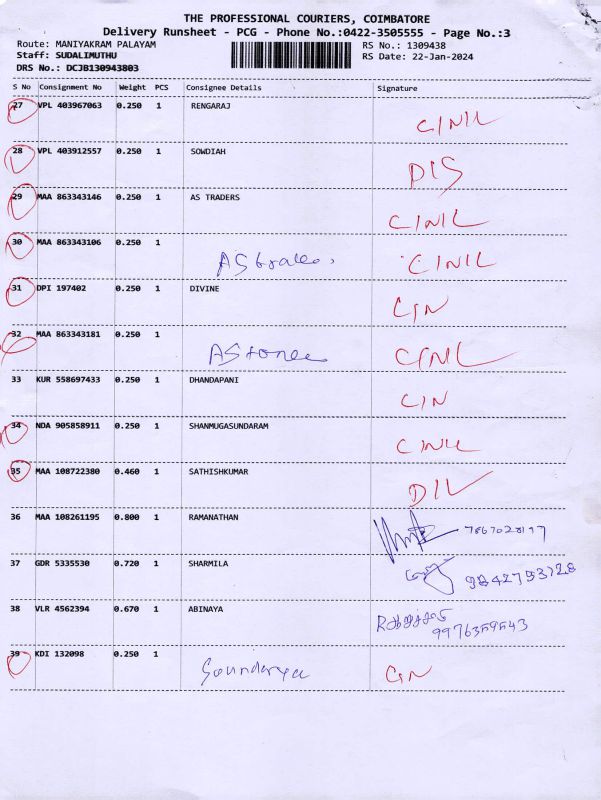 THE PROFESSIONAL COURIERS, COIMBATORE
Delivery Runsheet - PCG - Phone No.:0422-3505555 - Page No.:3
Route: MANIYAKRAM PALAYAM
RS No.: 1309438
Staff: SUDALIMUTHU
RS Date: 22-Jan-2024
DRS No.: DCJB130943803
S No Consignment No Weight PCS Consignee Details Signature
27 VPL 403967063 0.250 1 RENGARAJ C/NIL
28 VPL 403912557 0.250 1 SOWDIAH D/S
29 MAA 863343146 0.250 1 AS TRADERS C/NIL
30 MAA 863343106 0.250 1 C/NIL
31 DPI 197402 0.250 1 DIVINE C/N
32 MAA 863343181 0.250 1 C/NIL
33 KUR 558697433 0.250 1 DHANDAPANI C/N
34 NDA 905858911 0.250 1 SHANMUGASUNDARAM C/NIL
35 MAA 108722380 0.460 1 SATHISHKUMAR D/L
36 MAA 108261195 0.800 1 RAMANATHAN
37 GDR 5335530 0.720 1 SHARMILA 9842793728
38 VLR 4562394 0.670 1 ABINAYA
9976359543
39 KDI 132098 0.250 1 Soundarya C/N